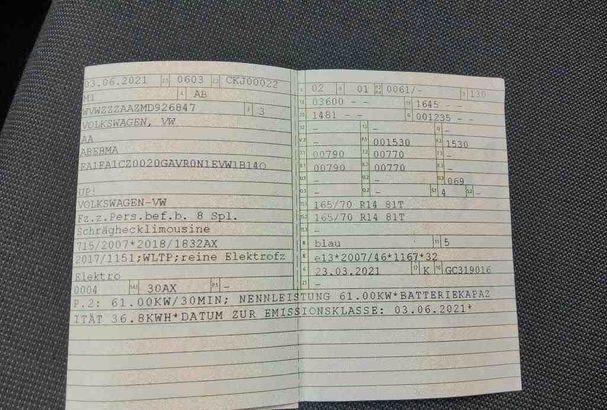 03.06.2021 0603 CKJ00022
M1 AB
WVWZZZAAZMD926847 3
VOLKSWAGEN, VW
AA
ABEBMA
EA1FA1CZ0020GAVR0N1EVW1B14O
UP!
VOLKSWAGEN-VW
Fz.z.Pers.bef.b. 8 Spl.
Schräghecklimousine
715/2007*2018/1832AX
2017/1151;WLTP;reine Elektrofz
Elektro
0004 30AX -
02 01 0061/- 130
03600 - - 1645 - -
1481 - - 001235 - -
- - -
- 001530 1530
00790 00770 -
00790 00770 -
- - 069
- - 4 -
165/70 R14 81T
165/70 R14 81T
-
blau 5
e13*2007/46*1167*32
23.03.2021 K GC319016
-
P.2: 61.00KW/30MIN; NENNLEISTUNG 61.00KW*BATTERIEKAPAZ
ITÄT 36.8KWH*DATUM ZUR EMISSIONSKLASSE: 03.06.2021*